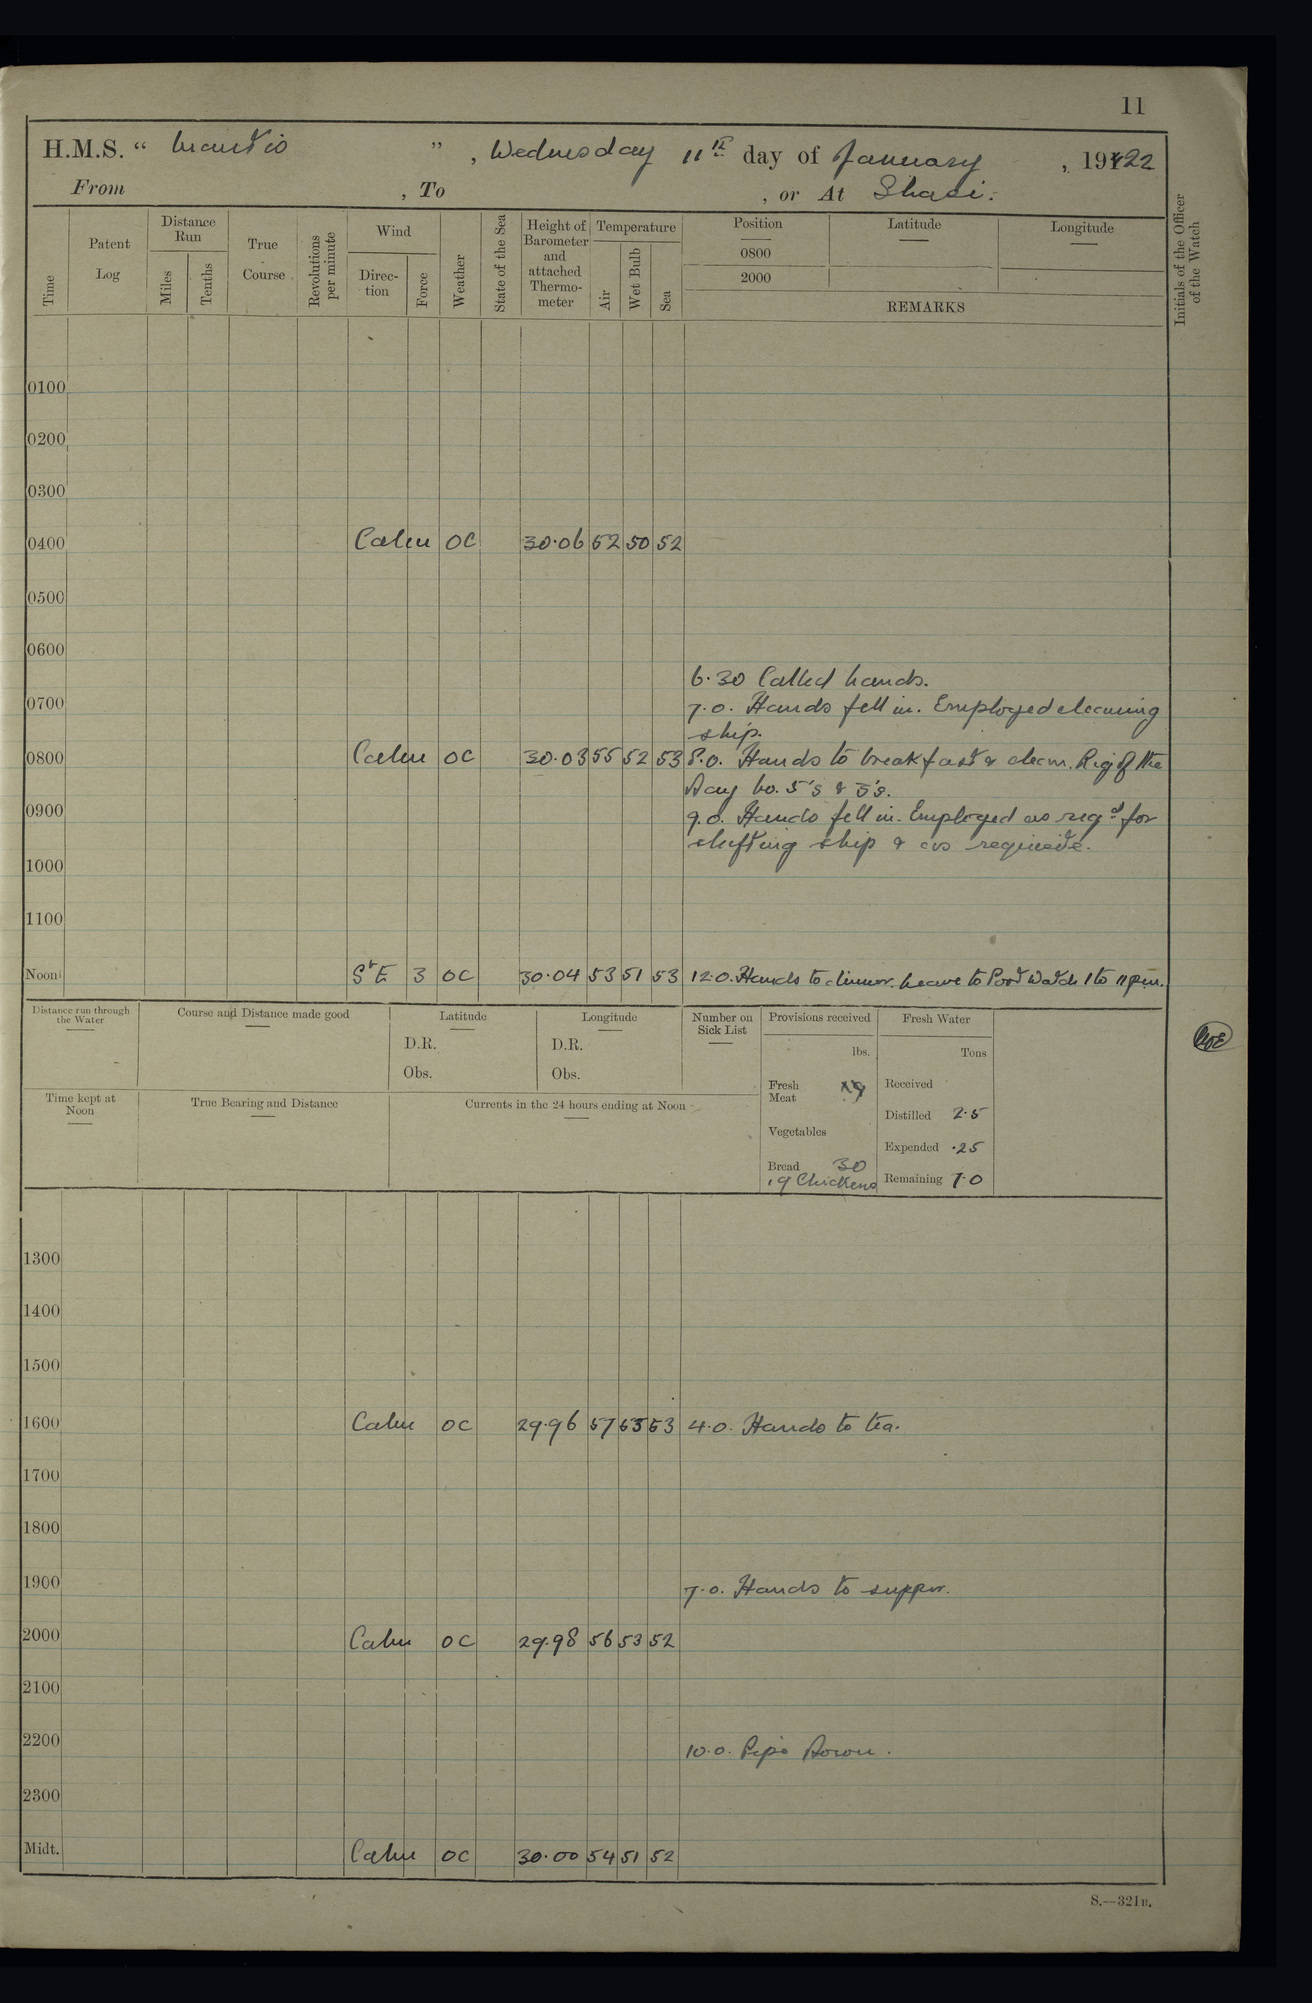 11
H.M.S. “ Mantis ” , Wednesday 11th day of January , 1922
From , To , or At Shasi.
Time
Patent Log
Distance Run
Miles
Tenths
True Course
Revolutions per minute
Wind
Direction
Force
Weather
State of the Sea
Height of Barometer and attached Thermometer
Temperature
Air
Wet Bulb
Sea
Position
0800
2000
Latitude
Longitude
REMARKS
Initials of the Officer of the Watch
0100
0200
0300
0400 Calm OC 30.06 52 50 52
0500
0600
6.30 Called hands.
0700 7.0. Hands fell in. Employed cleaning
ship.
0800 Calm OC 30.03 55 52 53 8.0. Hands to breakfast & clean. Rig of the
Day No. 5's & 3's.
0900 9.0. Hands fell in. Employed as reqd for
shifting ship & as requisite.
1000
1100
Noon S'E 3 OC 30.04 53 51 53 12.0. Hands to dinner. Leave to Port Watch 1 to 11 pm.
Distance run through the Water
Course and Distance made good
Latitude
D.R.
Obs.
Longitude
D.R.
Obs.
Number on Sick List
Provisions received
lbs.
Fresh Meat
Vegetables
Bread 30
19 Chickens
Fresh Water
Tons
Received
Distilled 2.5
Expended .25
Remaining 7.0
Time kept at Noon
True Bearing and Distance
Currents in the 24 hours ending at Noon
1300
1400
1500
1600 Calm OC 29.96 57 53 53 4.0. Hands to tea.
1700
1800
1900 7.0. Hands to supper.
2000 Calm OC 29.98 56 53 52
2100
2200 10.0. Pipe Down.
2300
Midt. Calm OC 30.00 54 51 52
S.—321B.